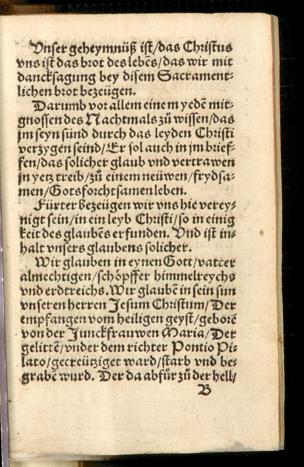 Vnser geheymnüß ist/das Christus
vns ist das brot des lebēs/das wir mit
dancksagung bey disem Sacrament-
lichen brot bezeügen.
Darumb vor allem einem yedē mit-
gnossen des Nachtmals zů wissen/das
jm seyn sünd durch das leyden Christi
verzygen seind/Er sol auch in jm brief-
fen/das solicher glaub vnd vertrawen
in yetz treib/zů einem neüwen/frydsa-
men/Gotsforchtsamen leben.
Fürter bezeügen wir vns hie verey-
nigt sein/in ein leyb Christi/so in einig
keit des glaubēs erfunden. Vnd ist in-
halt vnsers glaubens solicher.
Wir glauben in eynen Gott/vatter
almechtigen/schöpffer himmelreychs
vnd erdtreichs. Wir glaubē in sein sun
vnseren herren Jesum Christum/Der
empfangen vom heiligen geyst/geborē
von der Junckfrauwen Maria/Der
gelittē/vnder dem richter Pontio Pi-
lato/gecreütziget ward/starb vnd be-
grabē wurd. Der da abfür zů der hell/
B